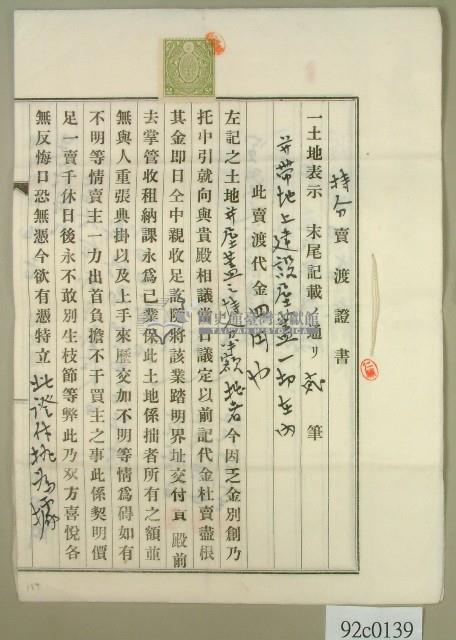 持分賣渡證書
一土地表示 末尾記載ノ通リ 貳 筆
并帶地上建設屋蓋一切在內
此賣渡代金四円也
左記之土地并屋蓋之持分額拙者今因乏金別創乃
托中引就向與貴殿相議當日議定以前記代金杜賣盡根
其金卽日仝中親收足訖旣將該業踏明界址交付貴殿前
去掌管收租納課永爲己業係此土地係拙者所有之額並
無與人重張典掛以及上手來歷交加不明等情爲碍如有
不明等情賣主一力出首負擔不干買主之事此係契明價
足一賣千休日後永不敢別生枝節等弊此乃双方喜悅各
無反悔口恐無憑今欲有憑特立此證付執爲據
92c0139